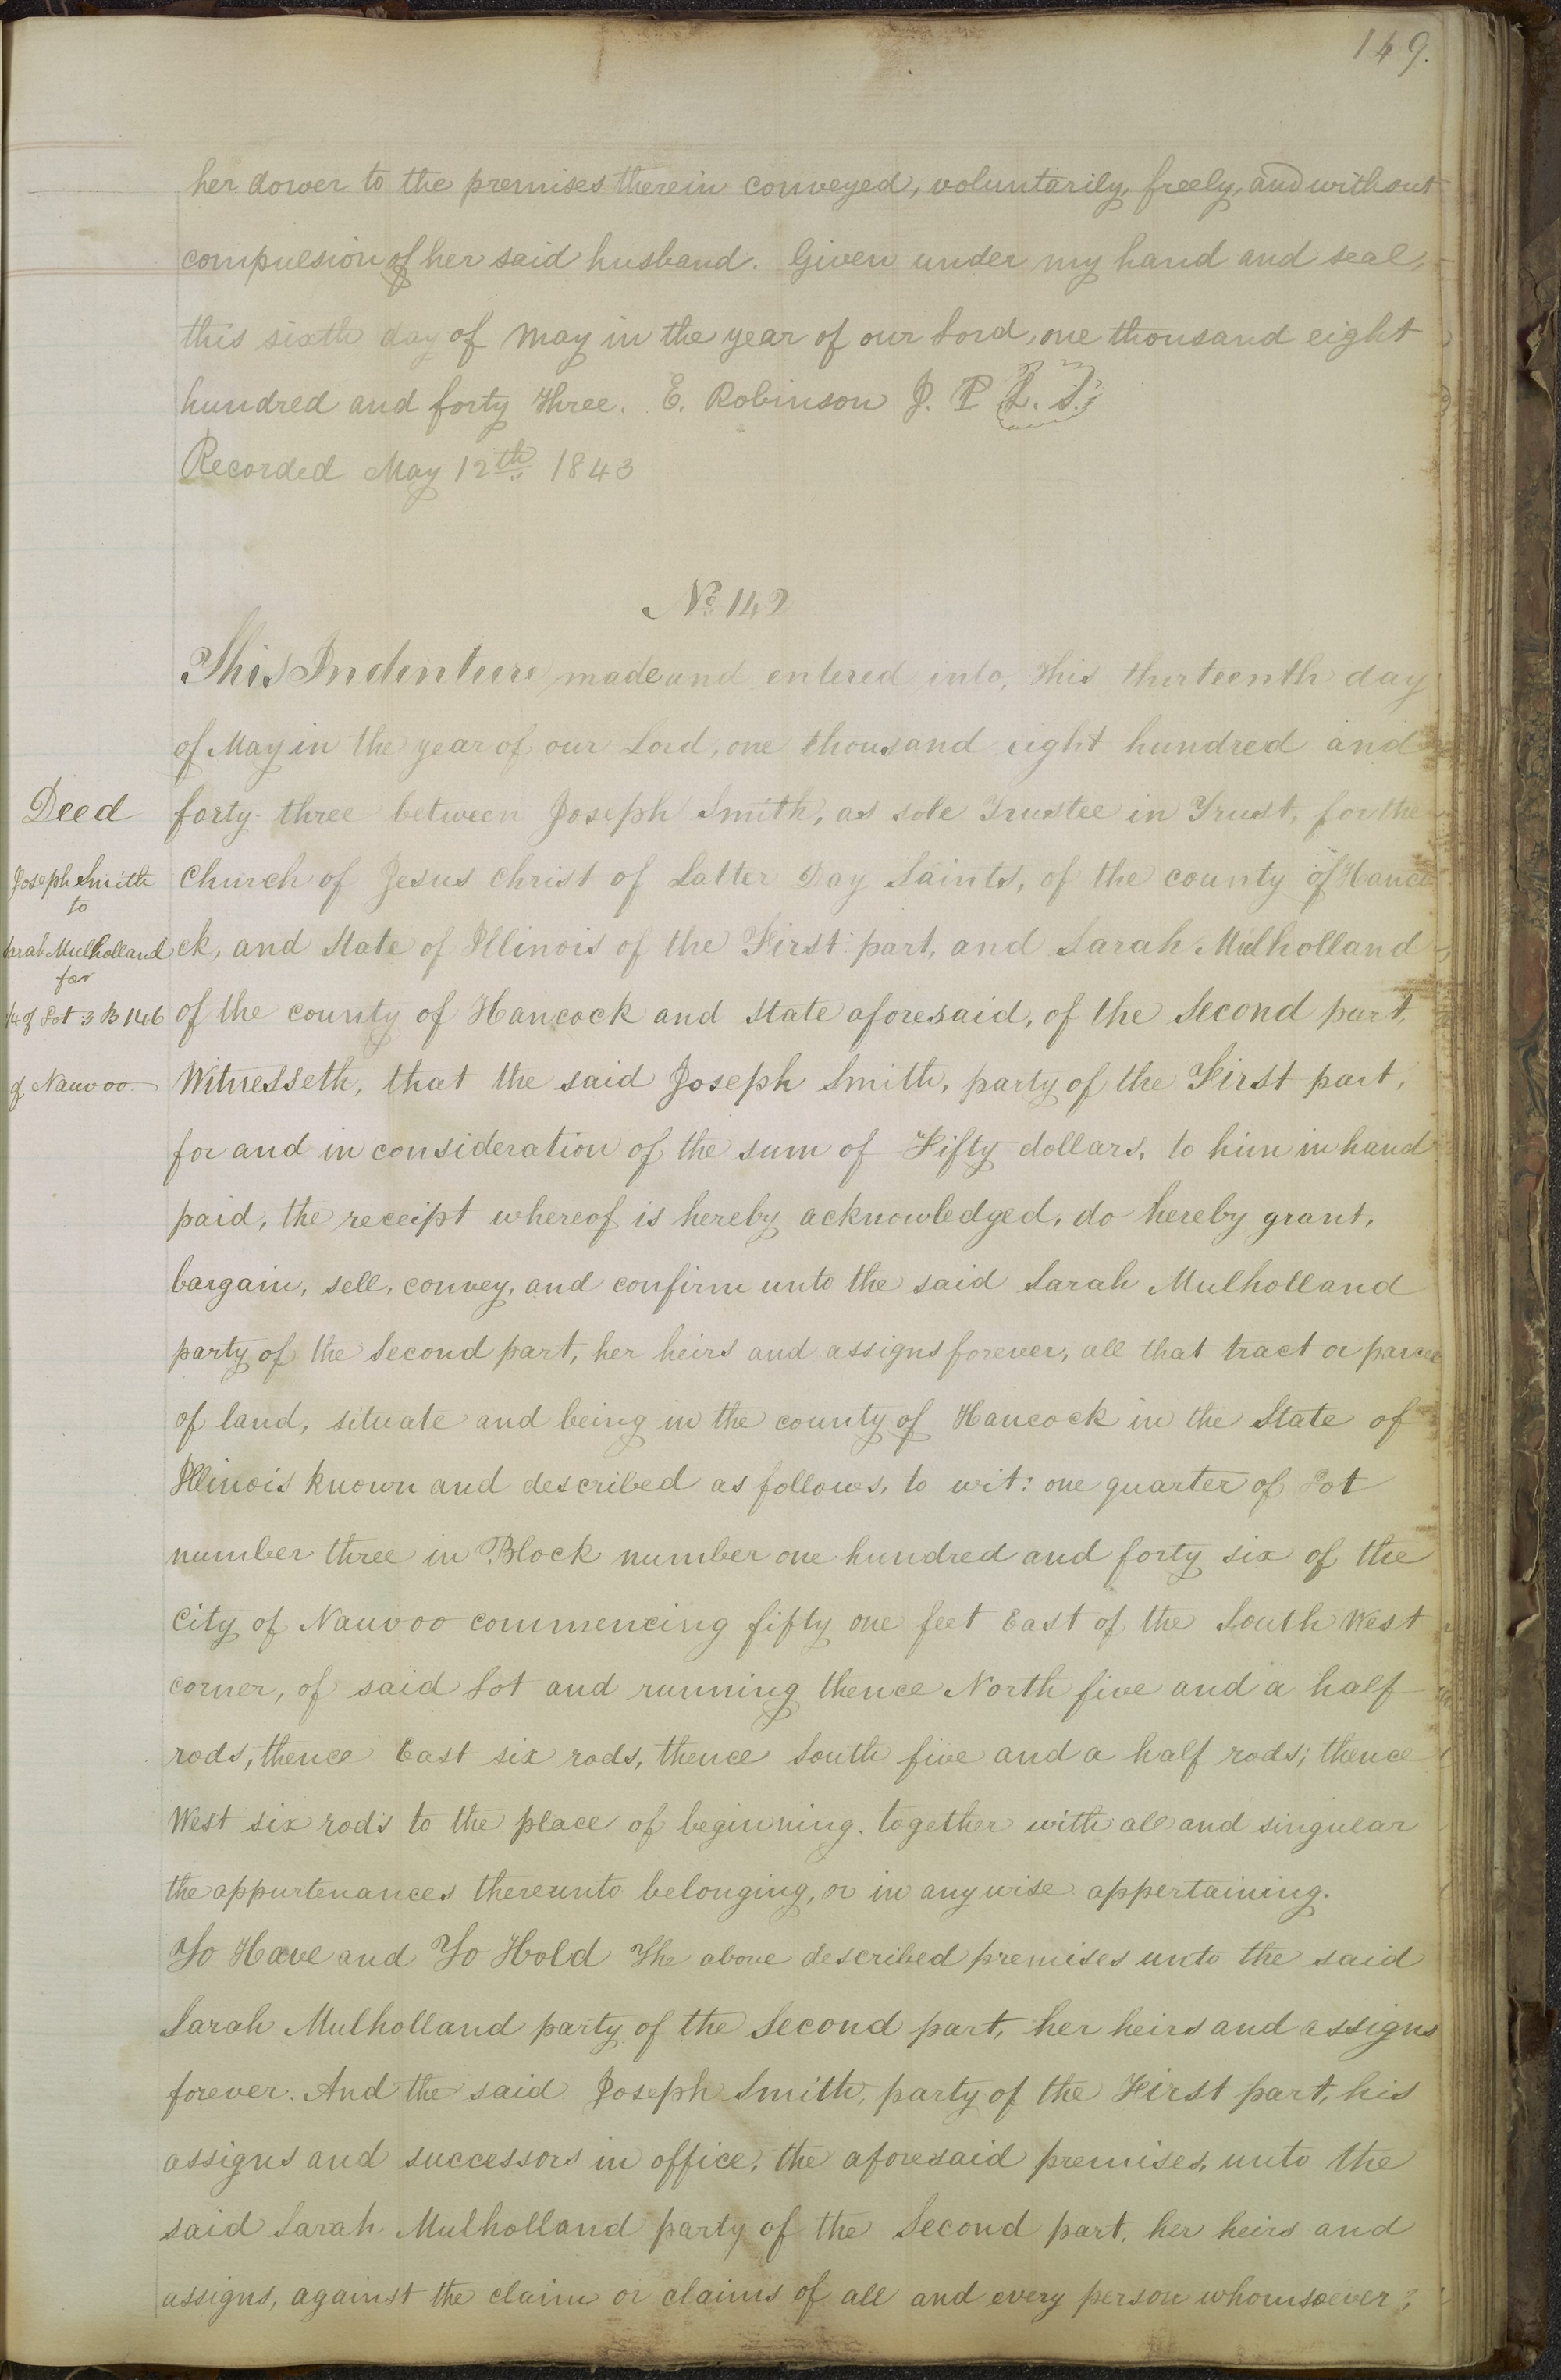 149.
her dower to the premises therein conveyed, voluntarily, freely, and without
compulsion of her said husband. Given under my hand and seal,
this sixth day of May in the year of our Lord, one thousand eight
hundred and forty three. E. Robinson J. P. L. S.
Recorded May 12th 1843
No. 149
This Indenture made and entered into, this thirteenth day
of May in the year of our Lord, one thousand eight hundred and
forty-three between Joseph Smith, as sole Trustee in Trust, for the
Church of Jesus Christ of Latter Day Saints, of the county of Hanco
ck, and State of Illinois of the First part, and Sarah Mulholland
of the county of Hancock and State aforesaid, of the Second part,
Witnesseth, that the said Joseph Smith, party of the First part,
for and in consideration of the sum of Fifty dollars, to him in hand
paid, the receipt whereof is hereby acknowledged, do hereby grant,
bargain, sell, convey, and confirm unto the said Sarah Mulholland
party of the Second part, her heirs and assigns forever, all that tract or parcel
of land, situate and being in the county of Hancock in the State of
Illinois known and described as follows, to wit: one quarter of Lot
number three in Block number one hundred and forty six of the
City of Nauvoo commencing fifty one feet East of the South West
corner, of said Lot and running thence North five and a half
rods, thence East six rods, thence South five and a half rods; thence
West six rods to the place of beginning. together with all and singular
the appurtenances thereunto belonging, or in any wise appertaining.
To Have and To Hold The above described premises unto the said
Sarah Mulholland party of the Second part, her heirs and assigns
forever. And the said Joseph Smith, party of the First part, his
assigns and successors in office, the aforesaid premises, unto the
said Sarah Mulholland party of the Second part, her heirs and
assigns, against the claim or claims of all and every person whomsoever;
Deed
Joseph Smith
to
Sarah Mulholland
for
1/4 of Lot 3 B 146
of Nauvoo.